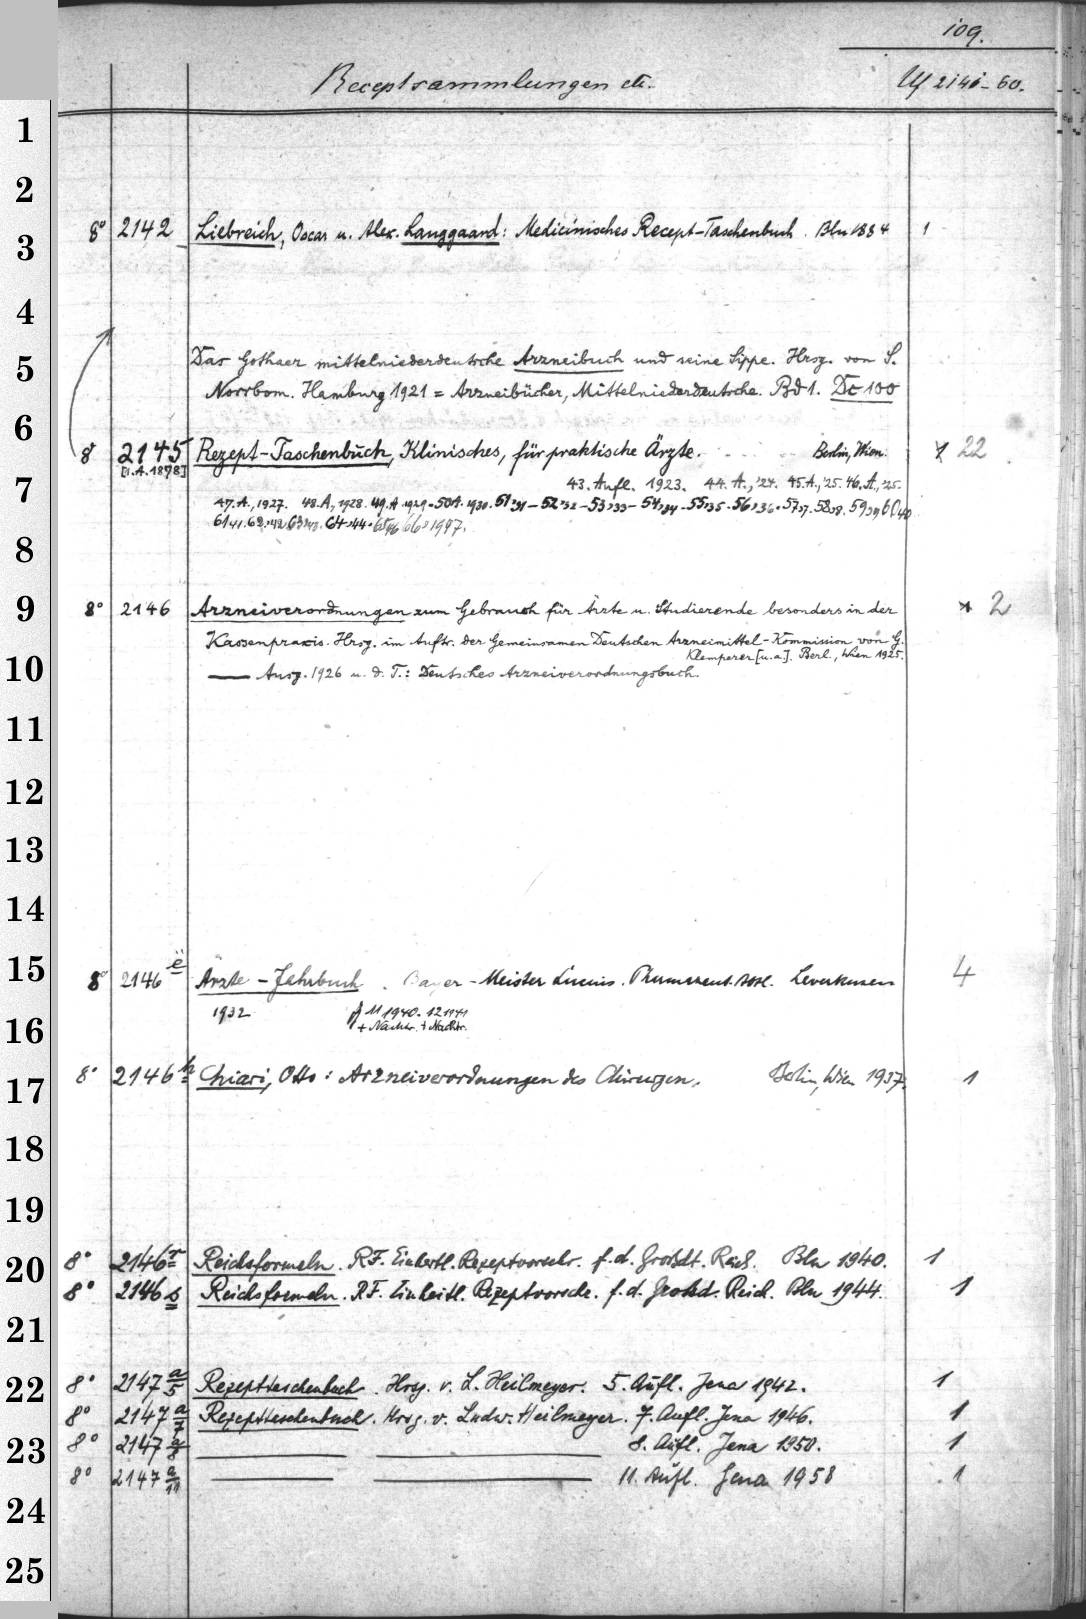 109.
Receptsammlungen etc. Uf 2141-60.
1
2
3
8° 2142 Liebreich, Oscar u. Alex. Langgaard: Medicinisches Recept-Taschenbuch. Bln 1884 1
4
Das Gothaer mittelniederdeutsche Arzneibuch und seine Sippe. Hrsg. von S.
5
Norrbom. Hamburg 1921 = Arzneibücher, Mittelniederdeutsche. Bd 1. Dc 100
6
8° 2145 Rezept-Taschenbuch, Klinisches, für praktische Ärzte. Berlin, Wien. 22
[1.A.1878]
7
43. Aufl. 1923. 44. A., '24. 45. A., '25. 46. A., '25.
47. A., 1927. 48. A., 1928. 49. A. 1929. 50 A. 1930. 51,'31 – 52,'32 – 53,'33 – 54,'34 – 55,'35. 56,'36. 57,37. 58,38. 59,39. 60,40
61,41. 62,'42. 63,'43. 64,'44. 65,46 66,1947.
8
9
8° 2146 Arzneiverordnungen zum Gebrauch für Ärzte u. Studierende besonders in der 2
Kassenpraxis. Hrsg. im Auftr. der Gemeinsamen Deutschen Arzneimittel-Kommission von G.
Klemperer [u.a]. Berl., Wien 1925.
10
— Ausg. 1926 u. d. T.: Deutsches Arzneiverordnungsbuch.
11
12
13
14
15
8° 2146 e Ärzte-Jahrbuch. Bayer-Meister Lucius. Leverkusen 4
1932 11 1940. 12 1941
+ Nachtr. + Nachtr.
16
17
8° 2146 h Chiari, Otto: Arzneiverordnungen des Chirurgen. Berlin, Wien 1937. 1
18
19
20
8° 2146 r Reichsformeln. R.F. Einheitl. Rezeptvorschr. f. d. Großdt. Reich. Bln 1940. 1
8° 2146 s Reichsformeln. R.F. Einheitl. Rezeptvorschr. f. d. Großd. Reich. Bln 1944. 1
21
22
8° 2147 a/5 Rezepttaschenbuch. Hrsg. v. L. Heilmeyer. 5. Aufl. Jena 1942. 1
8° 2147 a/7 Rezepttaschenbuch. Hrsg. v. Ludw. Heilmeyer. 7. Aufl. Jena 1946. 1
23
8° 2147 a/8 — — 8. Aufl. Jena 1950. 1
8° 2147 a/11 — — 11. Aufl. Jena 1958 1
24
25